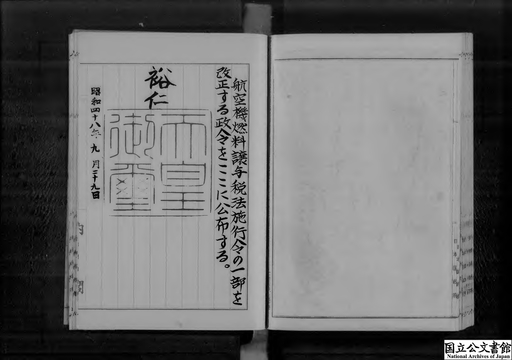 航空機燃料譲与税法施行令の一部を
改正する政令をここに公布する。
裕仁
天皇
御璽
昭和四十八年九月二十九日
国立公文書館
National Archives of Japan